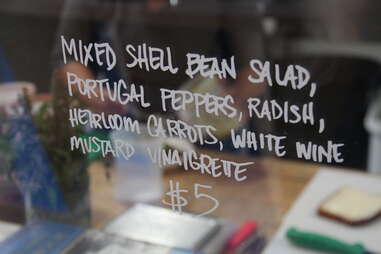 MIXED SHELL BEAN SALAD,
PORTUGAL PEPPERS, RADISH,
HEIRLOOM CARROTS, WHITE WINE
MUSTARD VINAIGRETTE
$5